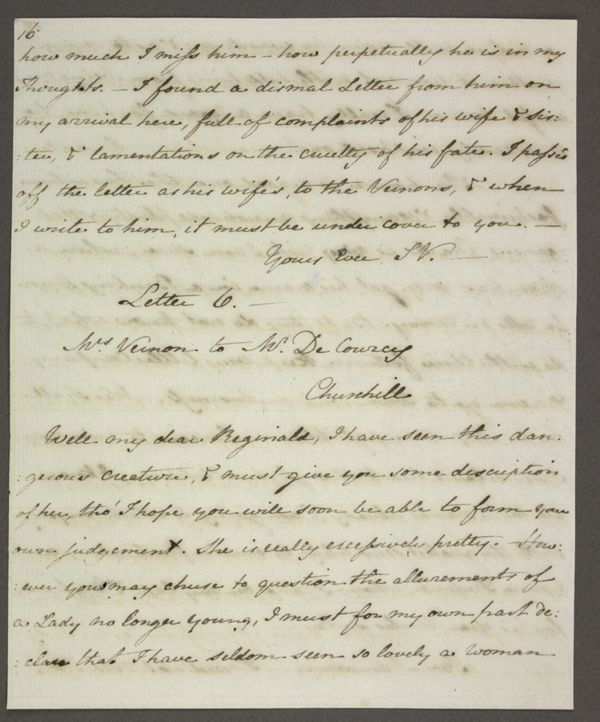 16
how much I miss him – how perpetually he is in my
Thoughts. – I found a dismal Letter from him on
my arrival here, full of complaints of his wife & sis:
:ter, & lamentations on the cruelty of his fate. I passed
off the letter as his wife's, to the Vernons, & when
I write to him, it must be under cover to you. –
Yours Ever, S.V. –
Letter 6. –
Mrs Vernon to Mr. De Courcy
Churchill
Well my dear Reginald, I have seen this dan:
:gerous creature, & must give you some description
of her, tho' I hope you will soon be able to form your
own judgement. She is really excessively pretty. How:
:ever you may chuse to question the allurements of
a Lady no longer young, I must for my own part de:
:clare that I have seldom seen so lovely a Woman